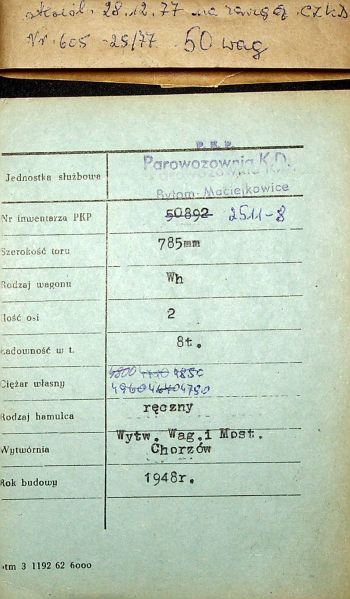 28.12.77 na
Nr. 605 - 25/77 50 wag
P. K. P.
Parowozownia K.D.
Bytom-Maciejkowice
Jednostka służbowa
Nr inwentarza PKP 50892 2511-8
Szerokość toru 785mm
Rodzaj wagonu Wh
Ilość osi 2
Ładowność w t. 8t.
4800 4850
Ciężar własny 4960 4640 4750
Rodzaj hamulca ręczny
Wytwórnia Wytw. Wag.i Most.
Chorzów
Rok budowy 1948r.
stm 3 1192 62 6000